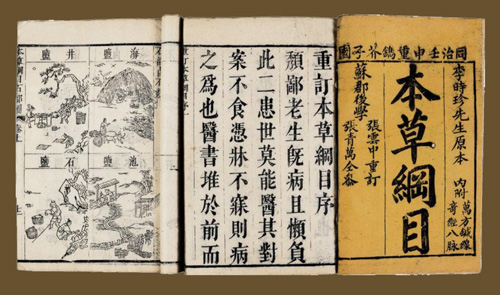 同治壬申重鐫芥子園
李時珍先生原本
內附
萬方鍼線
奇經八脉
本草綱目
蘇郡後學
張雲中重訂
張青萬仝參
重訂本草綱目序
頹鄙老生旣病且懶負
此二患世莫能醫其對
案不食憑牀不寐則病
之爲也醫書堆於前而
海鹽
井鹽
池鹽
石鹽